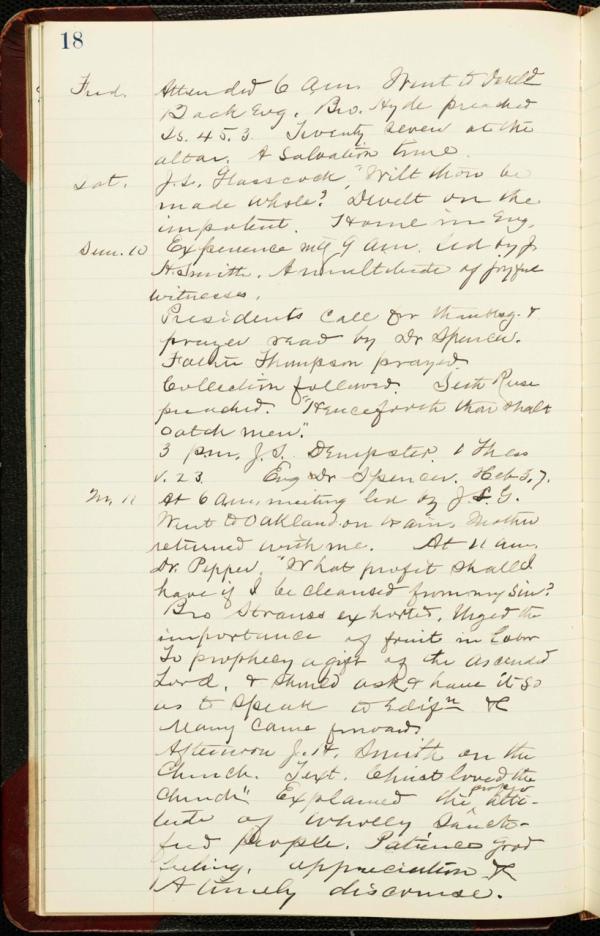 18
Frid. Attended 6 a.m. Went to
Back Evg. Bro. Hyde preached
Is. 45.3. Twenty seven at the
altar. A Salvation time.
Sat. J.L. Glasscock "Wilt thou be
made whole? Dwelt on the
impotent. Home in Evg.
Sun. 10 Experience mtg 9 am. led by J
H. Smith. A multitude of joyful
witnesses.
Presidents call for thanksg. &
prayer read by Dr Spencer.
Father Thompson prayed
Collection followed. Seth Rees
preached. "Henceforth thou shalt
catch men".
3 pm. J.S. Dempster. 1 Thess
v. 23. Evg Dr Spencer. Heb 3, 7.
M. 11 At 6 am, meeting led by J.L.G.
Went to Oakland on 10 am, Mother
returned with me. At 11 am,
Dr. Pepper. "What profit shall I
have if I be cleansed from my sin?
Bro Strauss exhorted. Urged the
importance of fruit in labor
To prophecy a gift of the ascended
Lord, & should ask & have it so
as to speak to Edifn &c
Many came forward.
Afternoon J.H. Smith on the
Church. Text. Christ loved the
Church". Explained the proper atti-
tude of wholly Sancti-
fied people. Patience good
feeling, appreciation &c
A timely discourse.